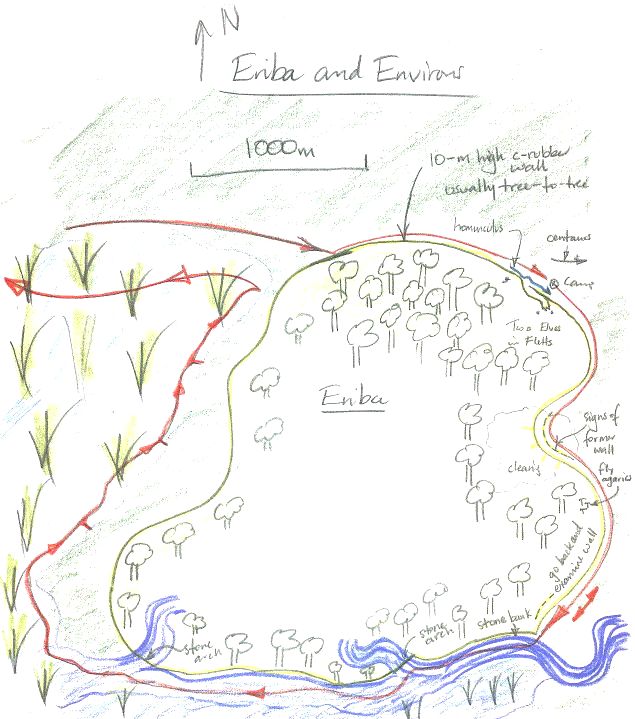 N
Eriba and Environs
1000m
10-m high c-rubber
wall
usually tree-to-tree
homunculus
centaurs
Camp
Two Elves
in Fletts
Eriba
signs of
former
wall
clearing
fly
agarics
go back and
examine wall
stone bank
stone
arch
stone
arch